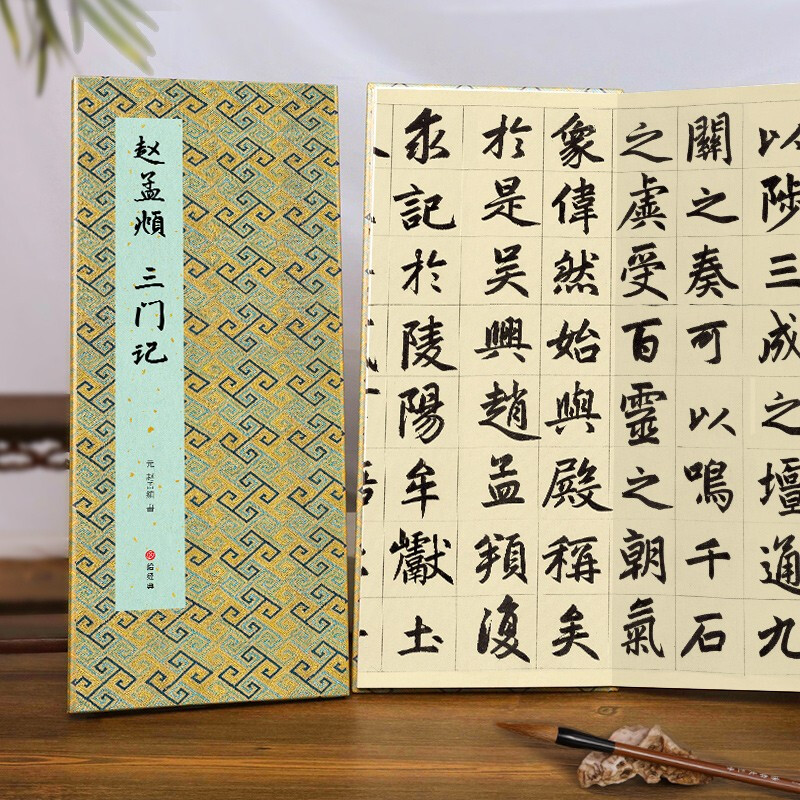 赵孟頫 三门记
元 赵孟頫 書
以陟三成之壇通九
關之奏可以鳴千石
之虡受百靈之朝氣
象偉然始與殿稱矣
於是吴興趙孟頫復
求記於陵陽牟巘土